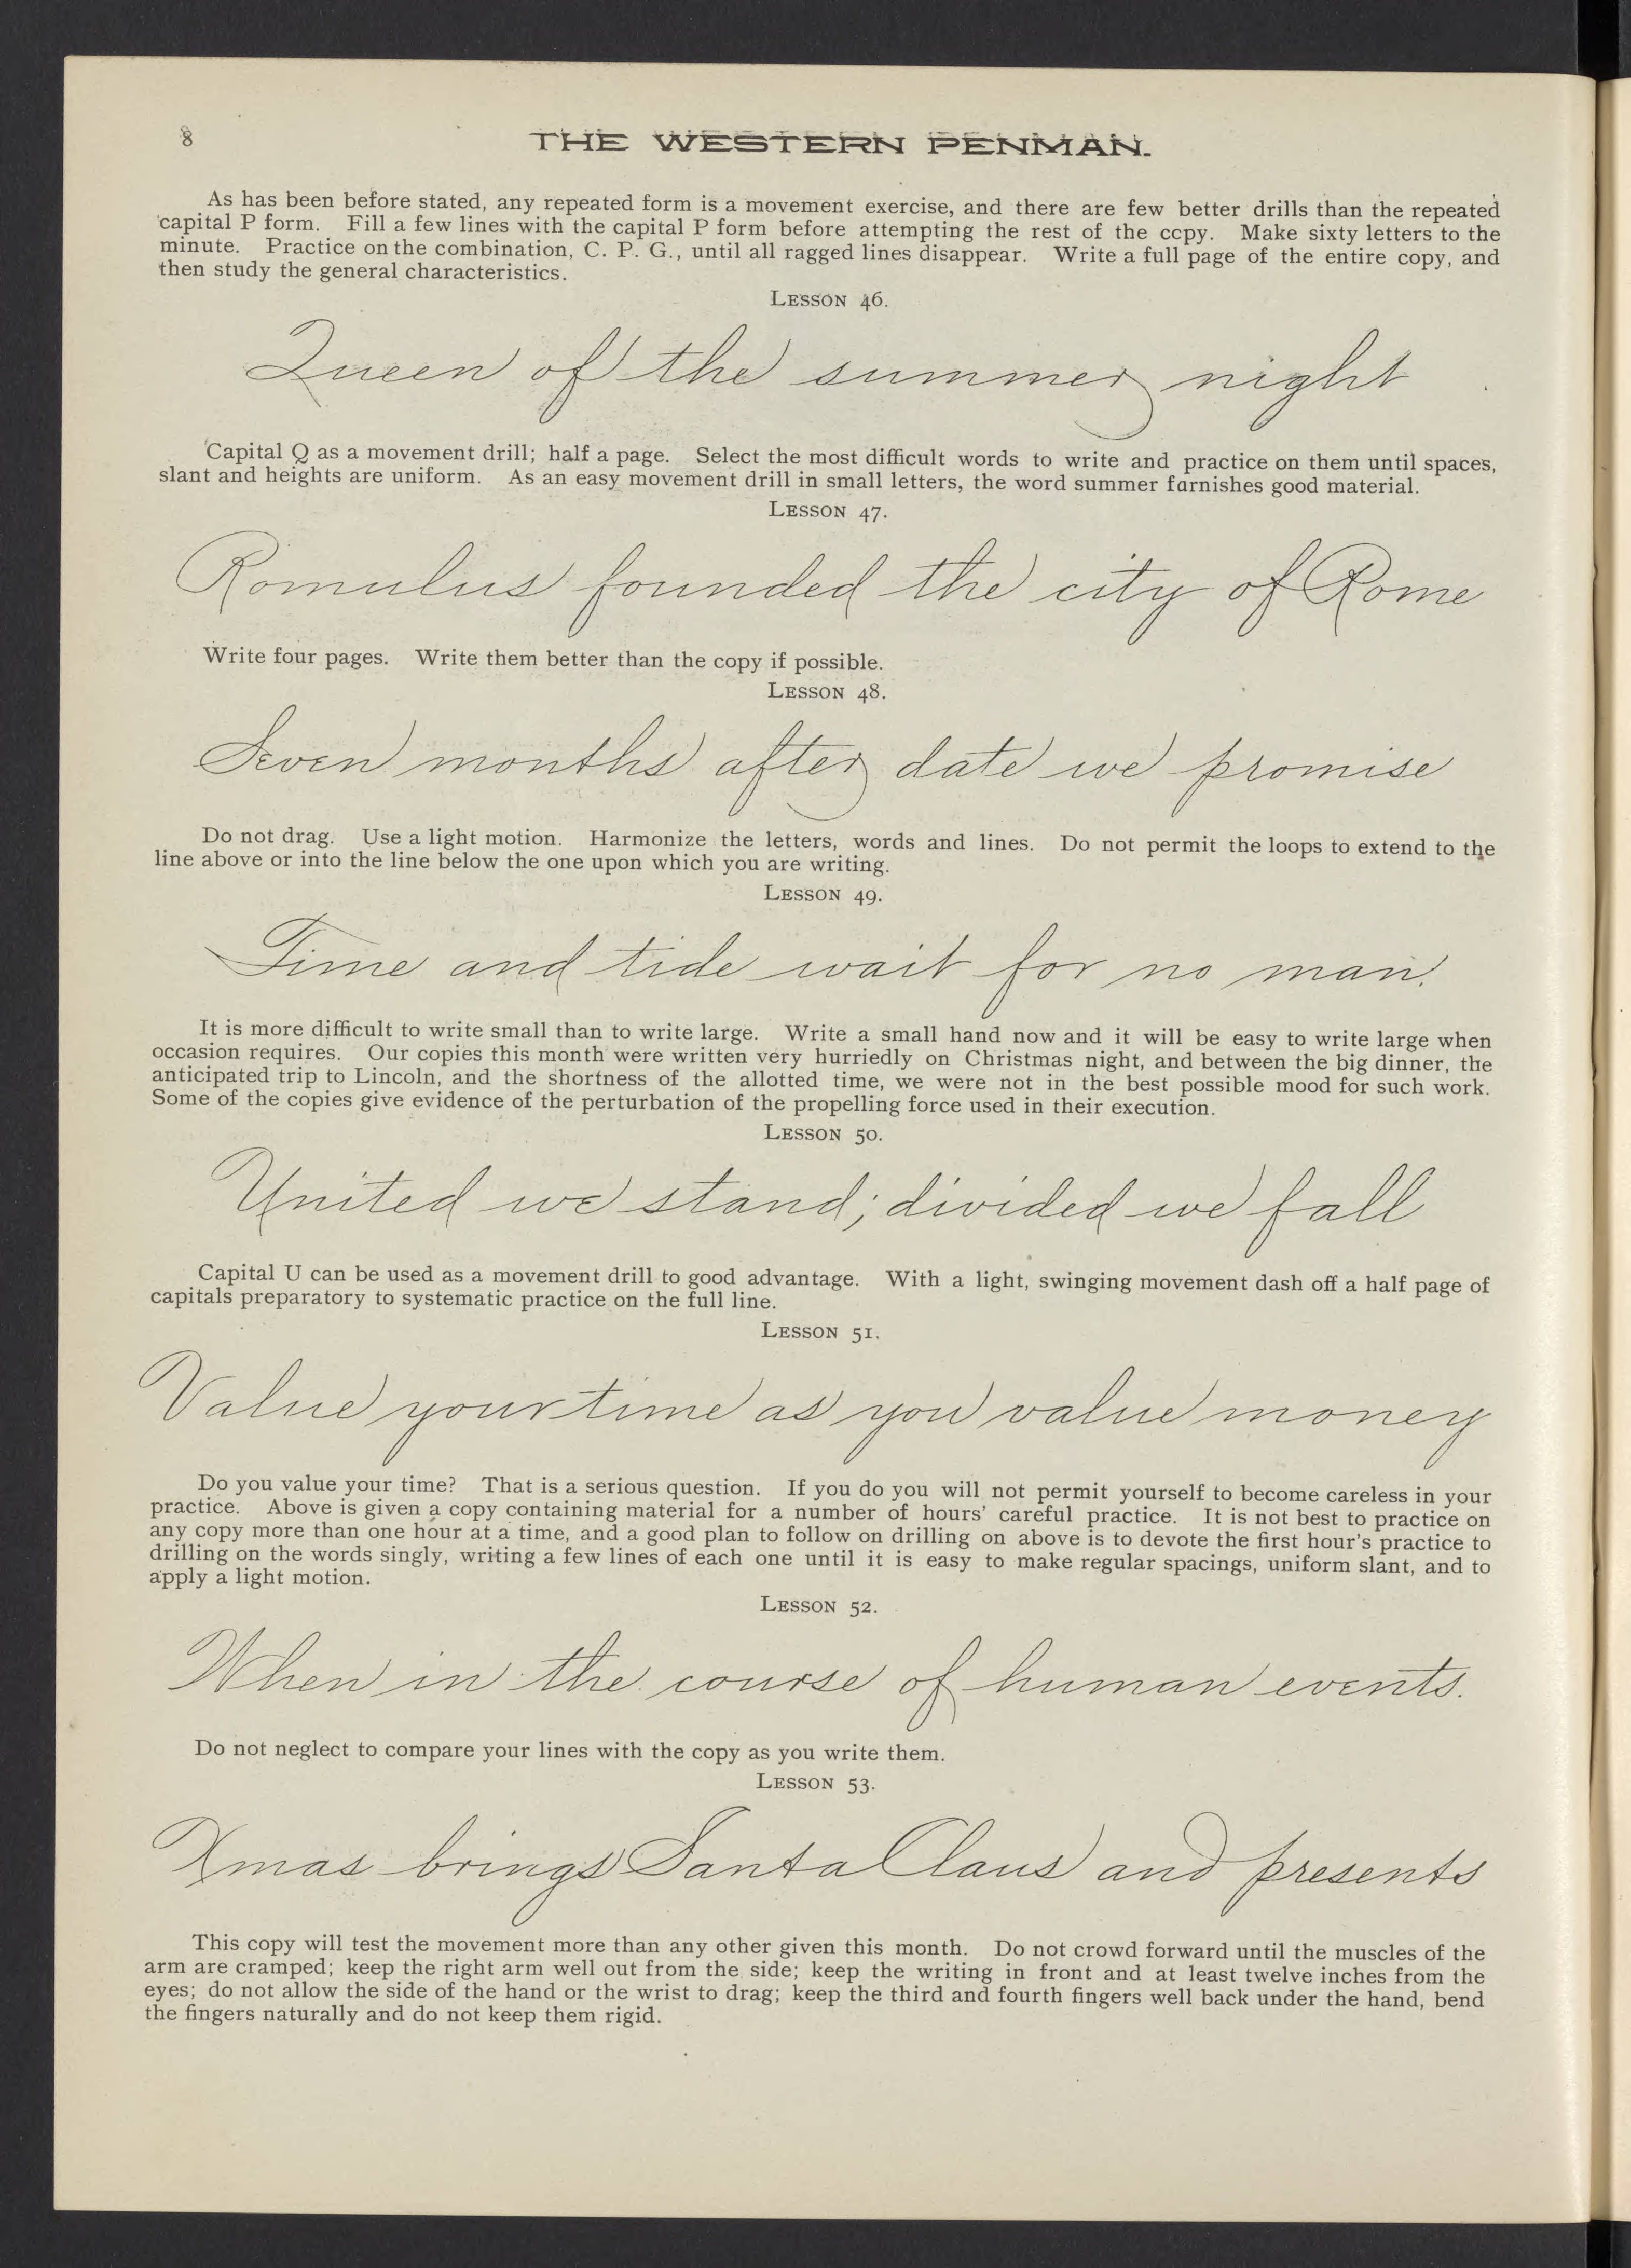 8
THE WESTERN PENMAN.
As has been before stated, any repeated form is a movement exercise, and there are few better drills than the repeated
capital P form. Fill a few lines with the capital P form before attempting the rest of the ccpy. Make sixty letters to the
minute. Practice on the combination, C. P. G., until all ragged lines disappear. Write a full page of the entire copy, and
then study the general characteristics.
LESSON 46.
Queen of the summer night
Capital Q as a movement drill; half a page. Select the most difficult words to write and practice on them until spaces,
slant and heights are uniform. As an easy movement drill in small letters, the word summer farnishes good material.
LESSON 47.
Romulus founded the city of Rome
Write four pages. Write them better than the copy if possible.
LESSON 48.
Seven months after date we promise
Do not drag. Use a light motion. Harmonize the letters, words and lines. Do not permit the loops to extend to the
line above or into the line below the one upon which you are writing.
LESSON 49.
Time and tide wait for no man.
It is more difficult to write small than to write large. Write a small hand now and it will be easy to write large when
occasion requires. Our copies this month were written very hurriedly on Christmas night, and between the big dinner, the
anticipated trip to Lincoln, and the shortness of the allotted time, we were not in the best possible mood for such work.
Some of the copies give evidence of the perturbation of the propelling force used in their execution.
LESSON 50.
United we stand; divided we fall
Capital U can be used as a movement drill to good advantage. With a light, swinging movement dash off a half page of
capitals preparatory to systematic practice on the full line.
LESSON 51.
Value your time as you value money
Do you value your time? That is a serious question. If you do you will not permit yourself to become careless in your
practice. Above is given a copy containing material for a number of hours' careful practice. It is not best to practice on
any copy more than one hour at a time, and a good plan to follow on drilling on above is to devote the first hour's practice to
drilling on the words singly, writing a few lines of each one until it is easy to make regular spacings, uniform slant, and to
apply a light motion.
LESSON 52.
When in the course of human events.
Do not neglect to compare your lines with the copy as you write them.
LESSON 53.
Xmas brings Santa Claus and presents
This copy will test the movement more than any other given this month. Do not crowd forward until the muscles of the
arm are cramped; keep the right arm well out from the side; keep the writing in front and at least twelve inches from the
eyes; do not allow the side of the hand or the wrist to drag; keep the third and fourth fingers well back under the hand, bend
the fingers naturally and do not keep them rigid.